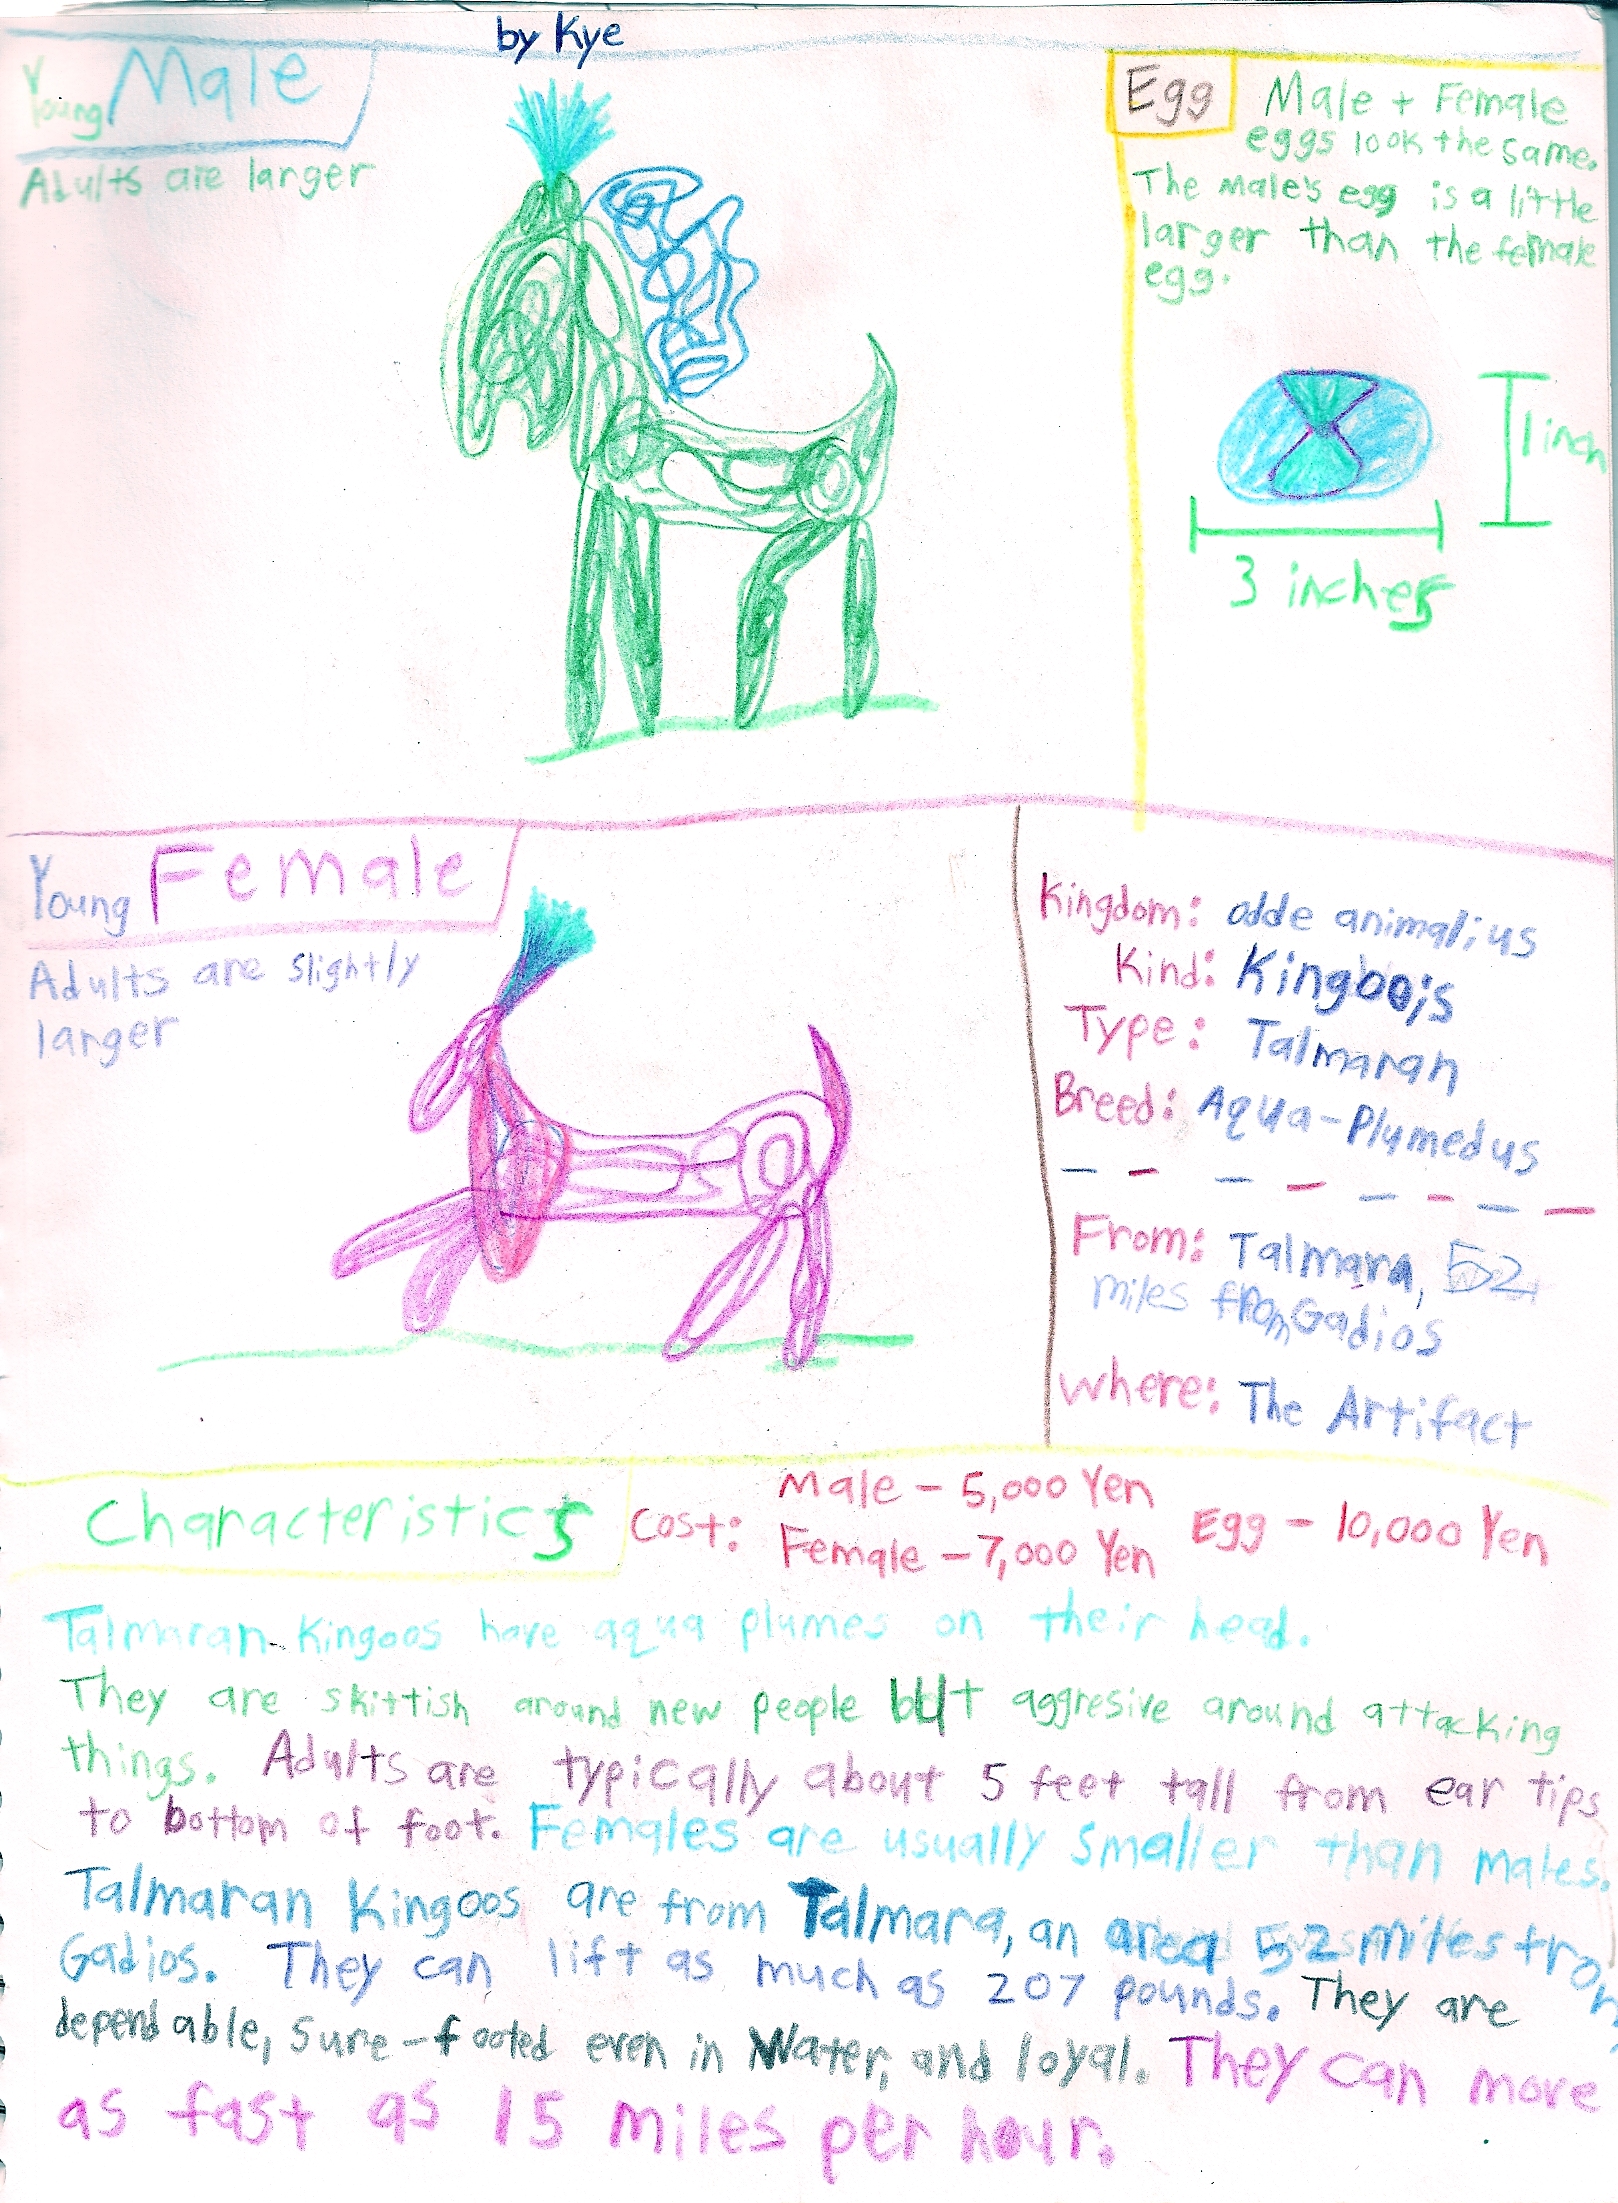 by Kye
Young Male
Adults are larger
Egg
Male + Female
eggs look the same.
The Male's egg is a little
larger than the female
egg.
1 inch
3 inches
Young Female
Adults are slightly
larger
Kingdom: odde animalius
Kind: Kingoois
Type: Talmaran
Breed: Aqua-Plumedus
From: Talmara, 52
miles from Gadios
Where: The Artifact
Characteristics
Cost:
Male - 5,000 Yen
Female - 7,000 Yen
Egg - 10,000 Yen
Talmaran Kingoos have aqua plumes on their head.
They are skittish around new people but aggresive around attacking
things. Adults are typically about 5 feet tall from ear tips
to bottom of foot. Females are usually smaller than males.
Talmaran Kingoos are from Talmara, an area 52 miles from
Gadios. They can lift as much as 207 pounds. They are
dependable, sure-footed even in water, and loyal. They can move
as fast as 15 miles per hour.